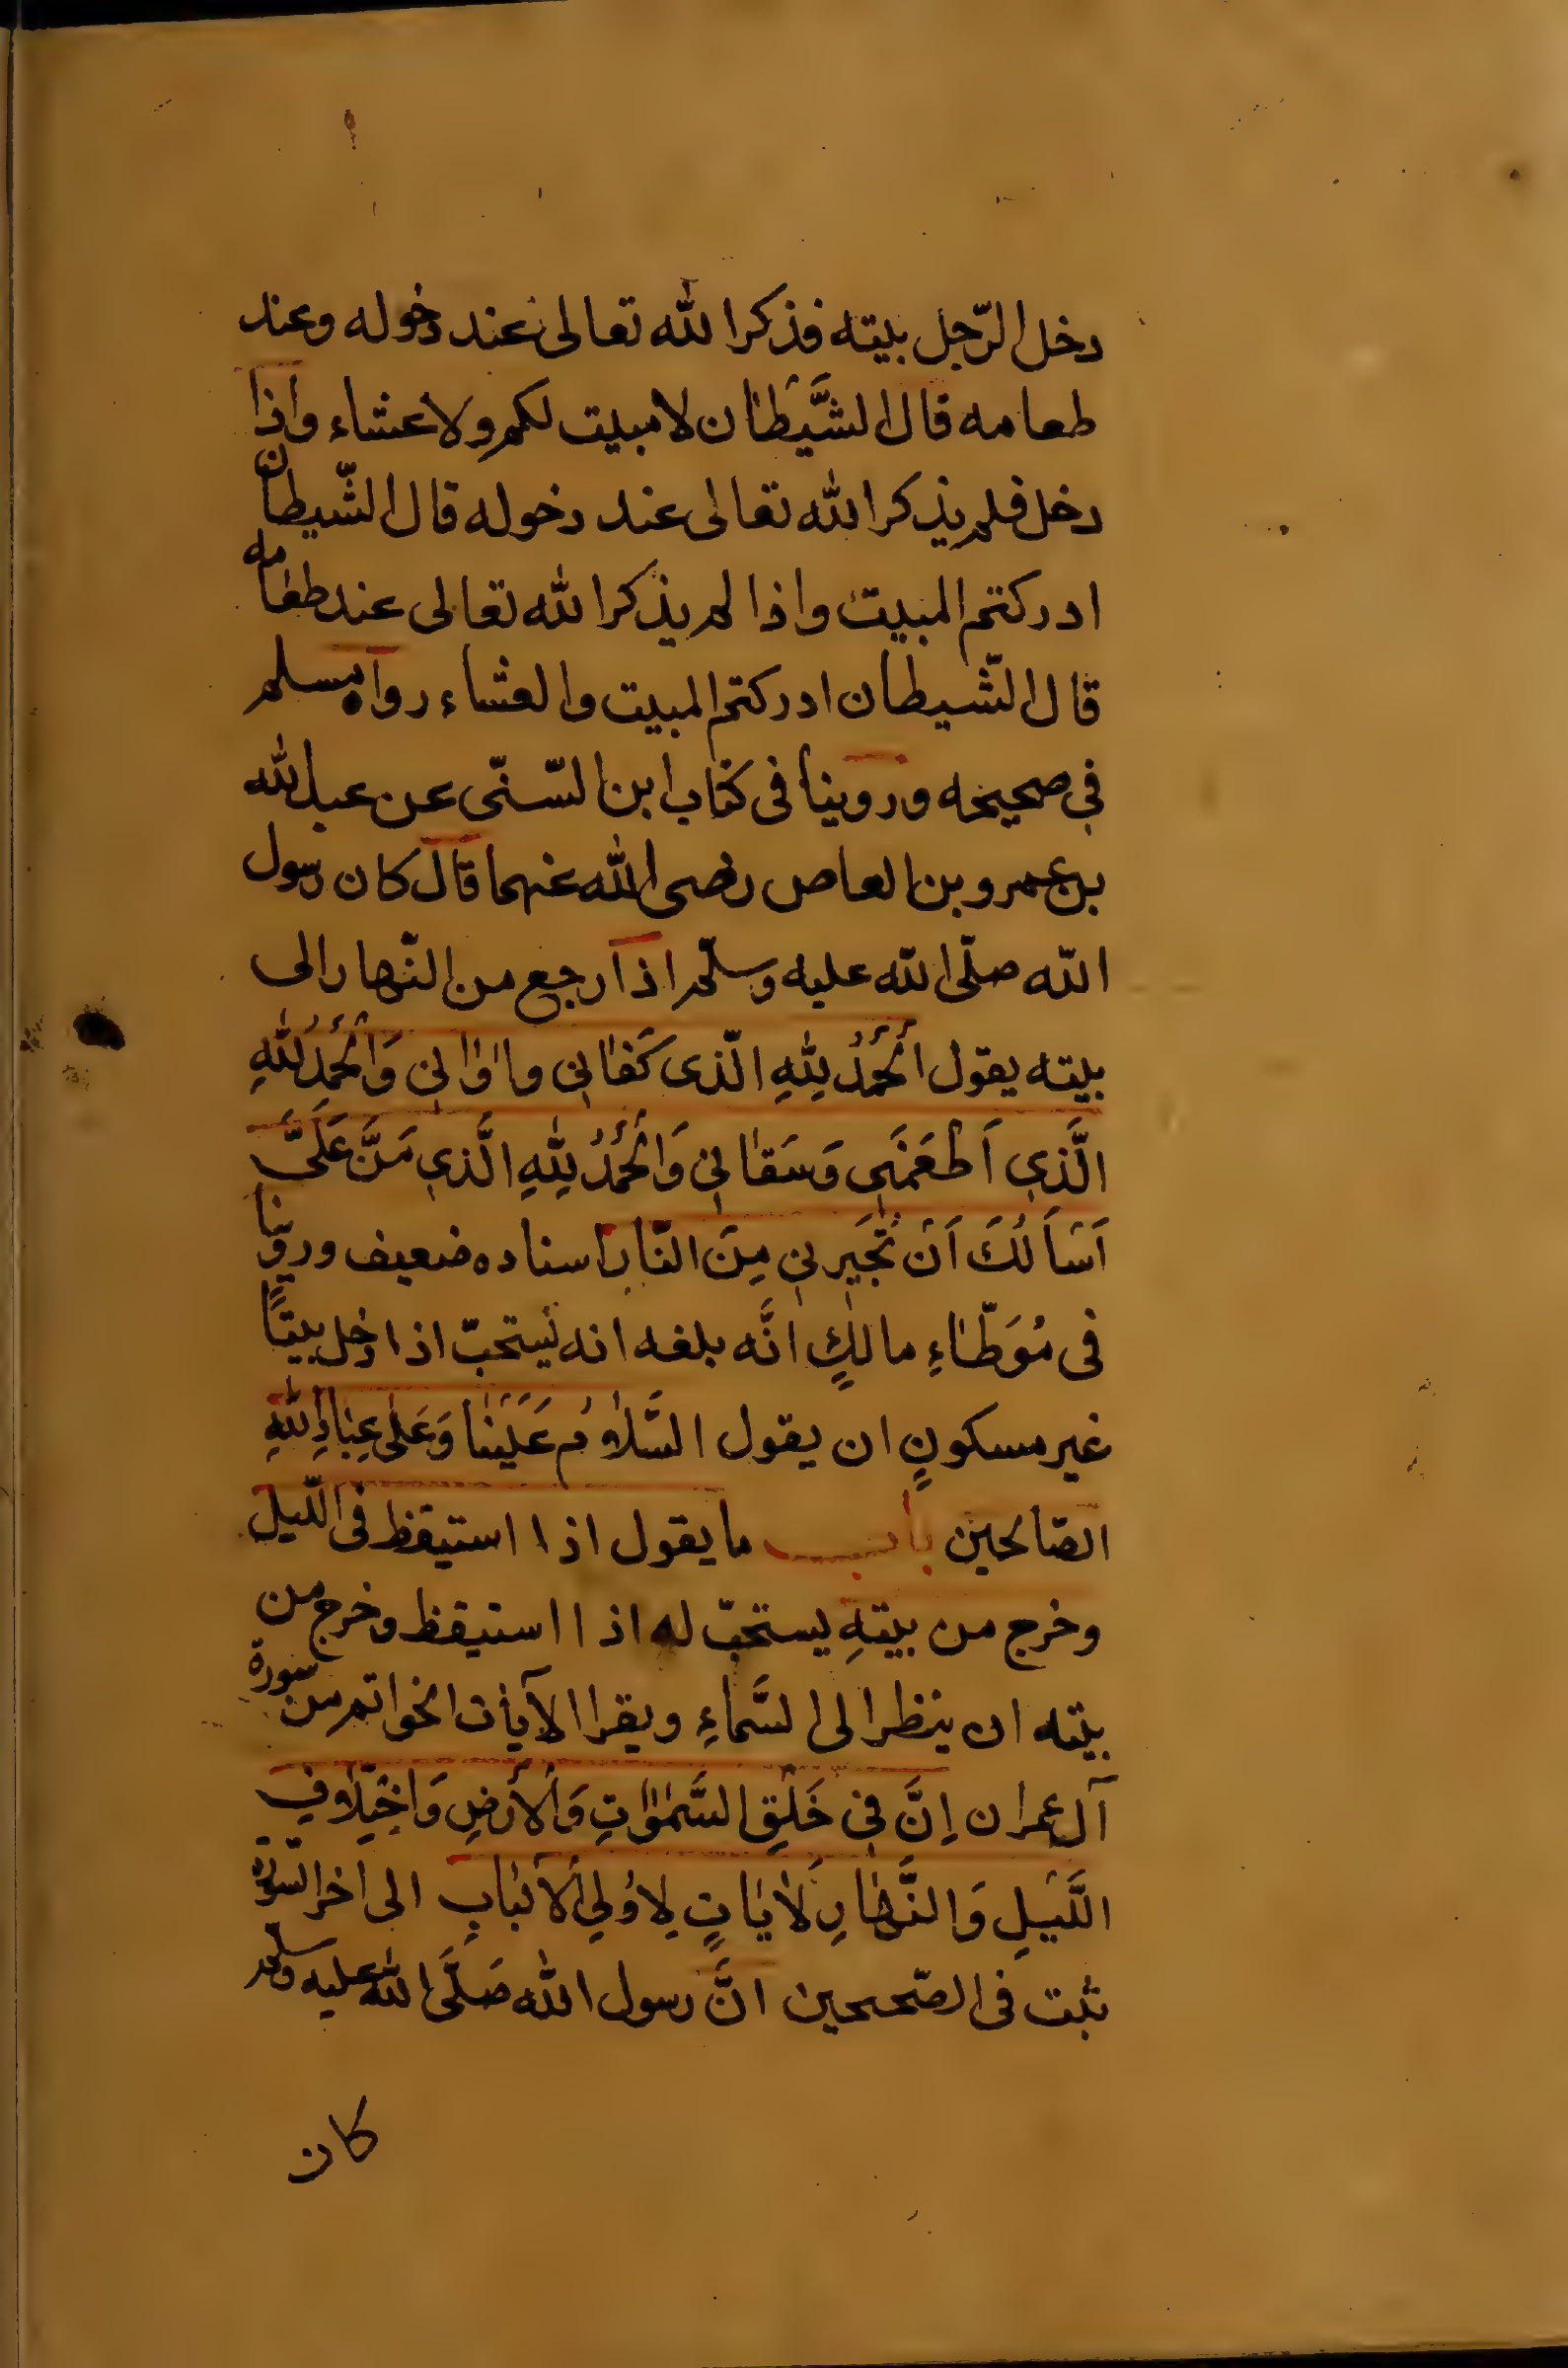 دخل الرّجل بيته فذكر الله تعالى عند دخوله وعند
طعامه قال الشَّيَطَان لا مبيت لكم ولا عشاء واذا
دخل فلم يذكر الله تعالى عند دخوله قال الشّيطان
ادركتم المبيت واذا لم يذكر الله تعالى عند طعامه
قال الشّيطان ادركتم المبيت والعشاء رواه مسلم
فى صحيحه وروينا فى كتاب ابن السّنّى عن عبد الله
بن عمرو بن العاص رضى الله عنهما قال كان رسول
الله صلّى الله عليه وسلّم اذا رجع من النّهار الى
بيته يقول اَلْحَمْدُ لِلّٰهِ الّذى كَفانِى واٰوانِى وَالْحَمْدُ لِلّٰهِ
الَّذِى اَطْعَمَنِى وَسَقانِى وَالْحَمْدُ لِلّٰهِ الَّذِى مَنَّ عَلَىَّ
اَسْاَلُكَ اَنْ تُجَيِرَنِى مِنَ النّارِ اسناده ضعيف وروّينا
فى مُوَطّاءِ مالكٍ انَّه بلغه انه يستحبّ اذا دخل بيتًا
غير مسكونٍ ان يقول السَّلٰاُم عَلَيْنٰا وَعَلٰى عِبٰادِ اللهِ
الصّالحين باب ما يقول اذا استيقظ فى اللّيل
وخرج من بيتهِ يستحبّ له اذا استيقظ وخرج من
بيته ان ينظر الى السَّماءِ ويقرا الآيات الخواتم من سورة
آل عمران اِنَّ فِى خَلْقِ السَّمٰوٰاتِ وَالْاَرْضِ وَاخْتِلٰافِ
اللَّيْلِ وَالنَّهٰارِ لَاٰيٰاتٍ لِاُولِى الْاَلْبٰابِ الى اخر السّورة
ثبت فى الصّحيحين انَّ رسول الله صَلَّى الله عليه وسلّم
كان